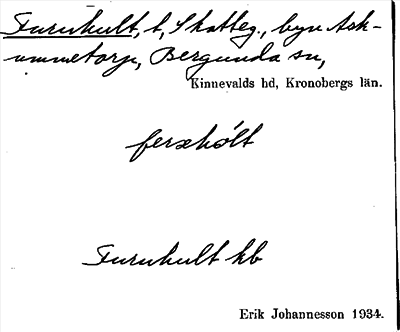 Furuhult, t, Skatteg., byn Ack-
ummetorp, Bergunda sn,
Kinnevalds hd, Kronobergs län.
Furuhult kb
Erik Johannesson 1934.